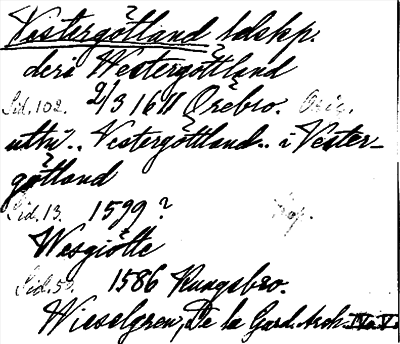 Vestergötland ldskp.
deri Westergöttland
Sid. 102. 2/3 1611 Örebro. Orig.
uttr .. Vestergöttland .. i Vester-
götland
Sid. 13. 1599 ?
Wesgiötte
Sid. 5 1586 Kungsbro.
Wieselgren, De la Gard. Arch. IV o. V.